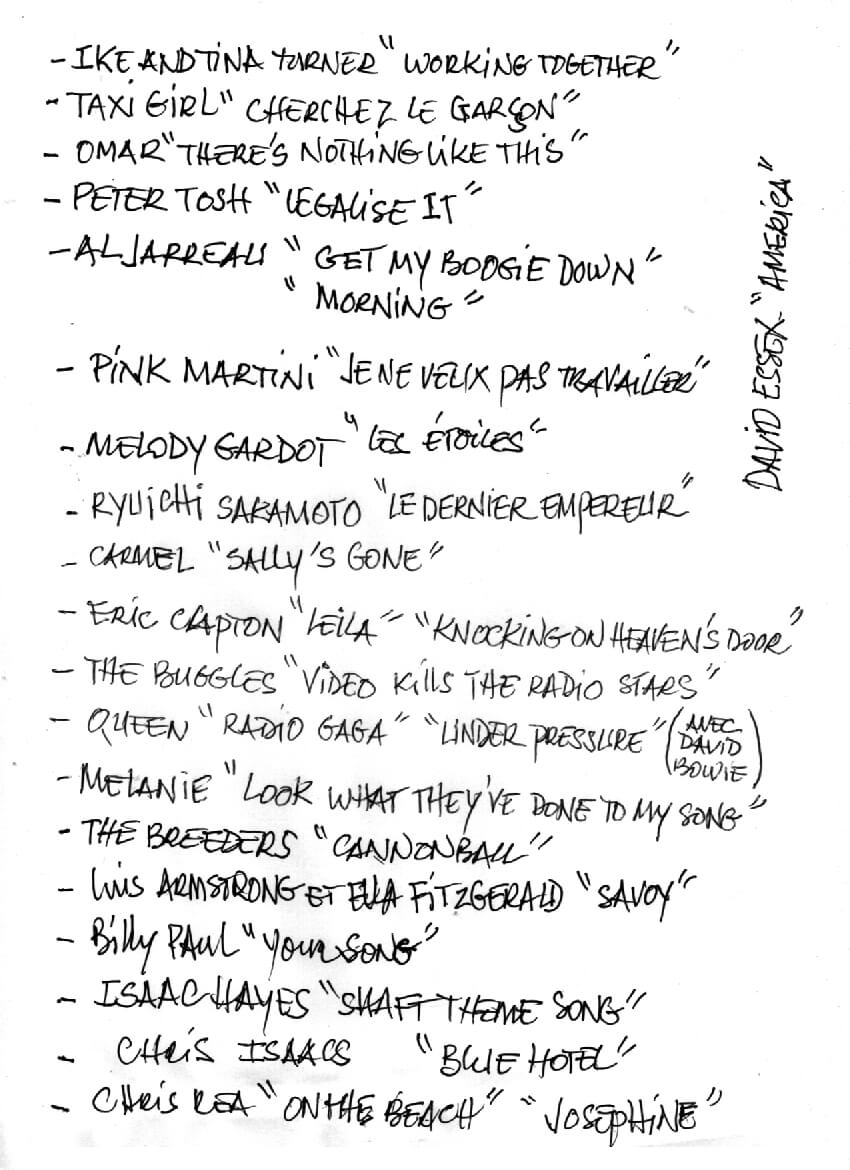 - IKE AND TINA TURNER "WORKING TOGETHER"
- TAXI GIRL "CHERCHEZ LE GARÇON"
- OMAR "THERE'S NOTHING LIKE THIS"
- PETER TOSH "LEGALISE IT"
- AL JARREAU "GET MY BOOGIE DOWN"
"MORNING"
- PINK MARTINI "JE NE VEUX PAS TRAVAILLER"
- MELODY GARDOT "LES ÉTOILES"
- RYUICHI SAKAMOTO "LE DERNIER EMPEREUR"
- CARMEL "SALLY'S GONE"
- ERIC CLAPTON "LEILA" "KNOCKING ON HEAVEN'S DOOR"
- THE BUGGLES "VIDEO KILLS THE RADIO STARS"
- QUEEN "RADIO GAGA" "UNDER PRESSURE" (AVEC
DAVID
BOWIE)
- MELANIE "LOOK WHAT THEY'VE DONE TO MY SONG"
- THE BREEDERS "CANNONBALL"
- LUIS ARMSTRONG ET ELLA FITZGERALD "SAVOY"
- BILLY PAUL "YOUR SONG"
- ISAAC HAYES "SHAFT THEME SONG"
- CHRIS ISAACS "BLUE HOTEL"
- CHRIS REA "ON THE BEACH" "JOSEPHINE"
DAVID ESSEX "AMERICA"